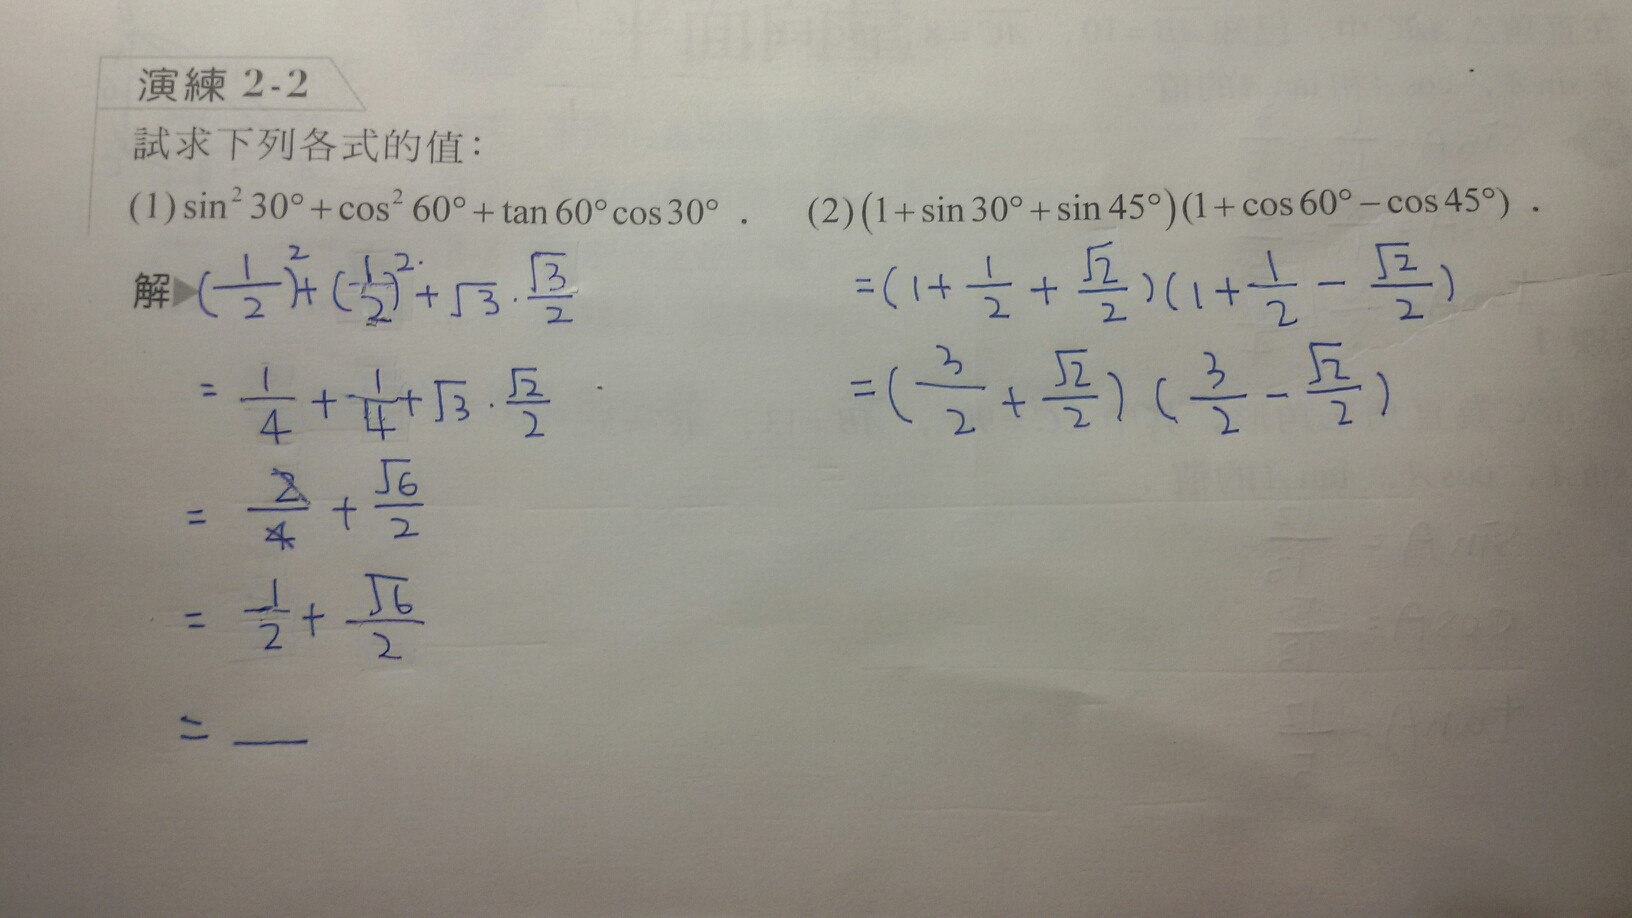 演練 2-2
試求下列各式的值：
(1) sin² 30° + cos² 60° + tan 60° cos 30° .
(2) (1 + sin 30° + sin 45°)(1 + cos 60° − cos 45°) .
解▶ (1/2)² + (1/2)² + √3 · √3/2
= 1/4 + 1/4 + √3 · √2/2
= 2/4 + √6/2
= 1/2 + √6/2
= —
= (1 + 1/2 + √2/2)(1 + 1/2 − √2/2)
= (3/2 + √2/2)(3/2 − √2/2)